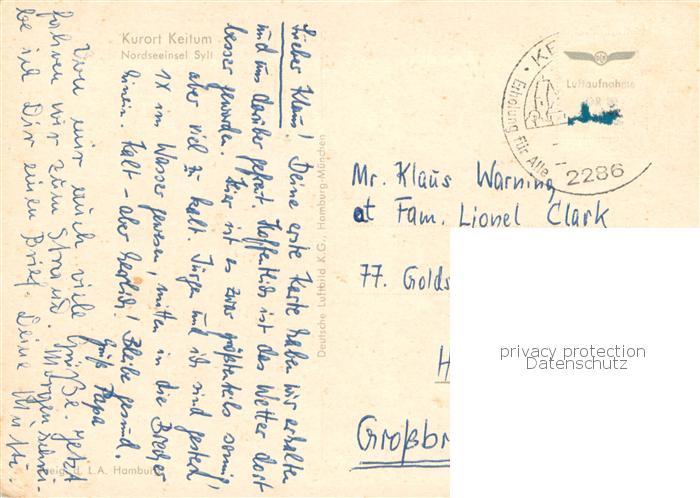 Kurort Keitum
Nordseeinsel Sylt
Lieber Klaus! Deine erste Karte haben wir erhalten
und uns darüber gefreut. Hoffentlich ist das Wetter dort
besser geworden. Hier ist es zwar größtenteils sonnig,
aber viel zu kalt. Jürgen und ich sind gestern
1X im Wasser gewesen, mitten in die Brecher
hinein. Kalt - aber herrlich! Bleibe gesund.
Gruß Papa
Von mir auch viele Grüße. Jetzt
fahren wir zum Strand. Morgen schrei-
be ich Dir einen Brief. Deine
Deutsche Luftbild K.G., Hamburg-München
Freig. d. L.A. Hamburg
Luftaufnahme
KE
Erholung für Alle
2286
Mr. Klaus Warning
at Fam. Lionel Clark
77. Golds
H
Großbr
privacy protection
Datenschutz